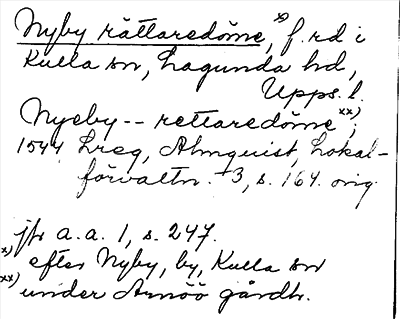 Nyby rättaredöme,ˣ⁾ f. rd i
Kulla sn, Lagunda hd,
Upps. l.
Nyeby -- rettaredömeˣˣ⁾;
1544 Lreg, Almquist, Lokal-
förvaltn. 3, s. 164. orig.
jfr a. a. 1, s. 247.
x) efter Nyby, by, Kulla sn
xx) under Arnöö gårdh.